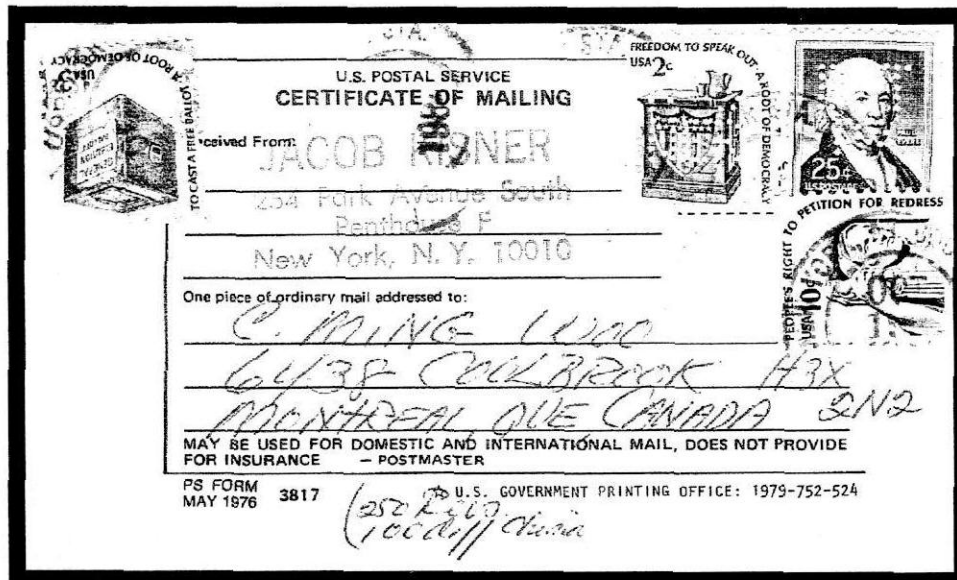 A ROOT OF DEMOCRACY
USA
TO CAST A FREE BALLOT
FREEDOM TO SPEAK OUT-A ROOT OF DEMOCRACY
USA 2c
25¢
U.S. POSTAGE
PEOPLE'S RIGHT TO PETITION FOR REDRESS
USA 10c
U.S. POSTAL SERVICE
CERTIFICATE OF MAILING
ceived From:
JACOB KISNER
254 Park Avenue South
Penthouse F
New York, N.Y. 10010
One piece of ordinary mail addressed to:
C. MING WOO
6438 COOLBROOK H3X
MONTREAL, QUE, CANADA 2N2
MAY BE USED FOR DOMESTIC AND INTERNATIONAL MAIL, DOES NOT PROVIDE
FOR INSURANCE – POSTMASTER
PS FORM
MAY 1976 3817
U.S. GOVERNMENT PRINTING OFFICE: 1979-752-524
(250
100 diff China